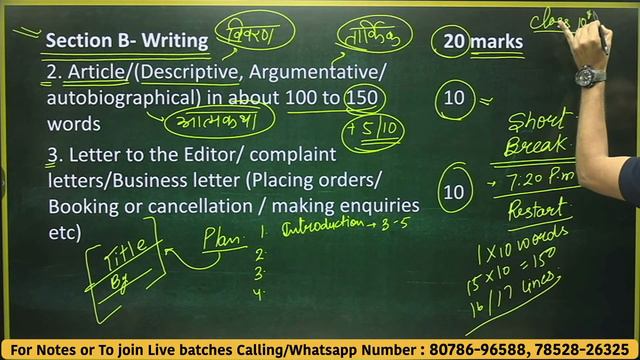 Class 10th
विवरण
तार्किक
Section B- Writing 20 marks
2. Article/(Descriptive, Argumentative/
autobiographical) in about 100 to 150 10
words
आत्मकथा
+ 5/10
Short
Break
3. Letter to the Editor/ complaint
letters/Business letter (Placing orders/ 10
Booking or cancellation / making enquiries
etc)
7:20 P.m
Restart
Title
By
Plan
1. Introduction → 3-5
2.
3.
4.
1 x 10 words
15 x 10 = 150
16/17 lines
For Notes or To join Live batches Calling/Whatsapp Number : 80786-96588, 78528-26325